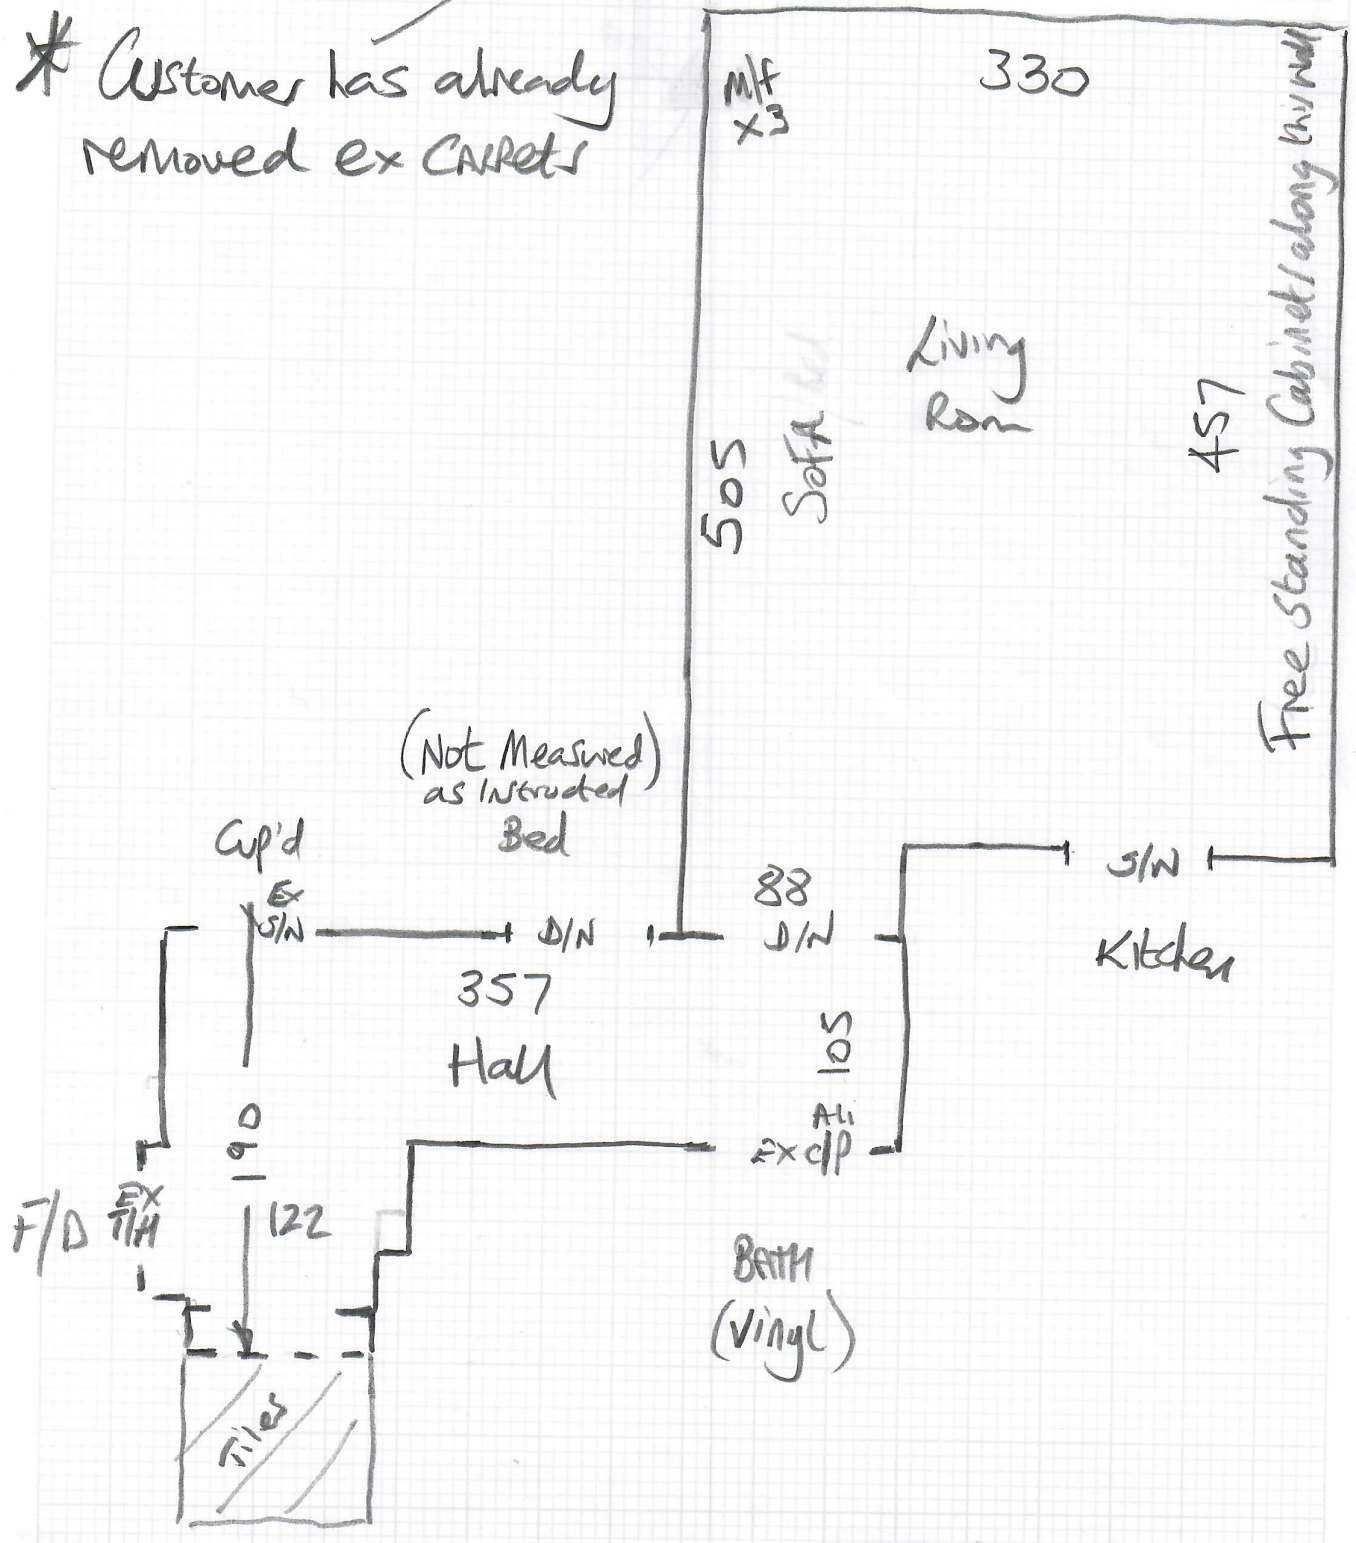 * Customer has already
removed ex Carpets
M/f
x3
330
Free Standing Cabinets along this wall
Living
Room
457
505
SOFA
(Not Measured)
as Instructed
Bed
Cup'd
Ex
S/N
D/N
88
D/N
S/N
Kitchen
357
Hall
105
Ali
EX C/P
190
F/D
EX
T/H
122
BATH
(Vinyl)
Tiles